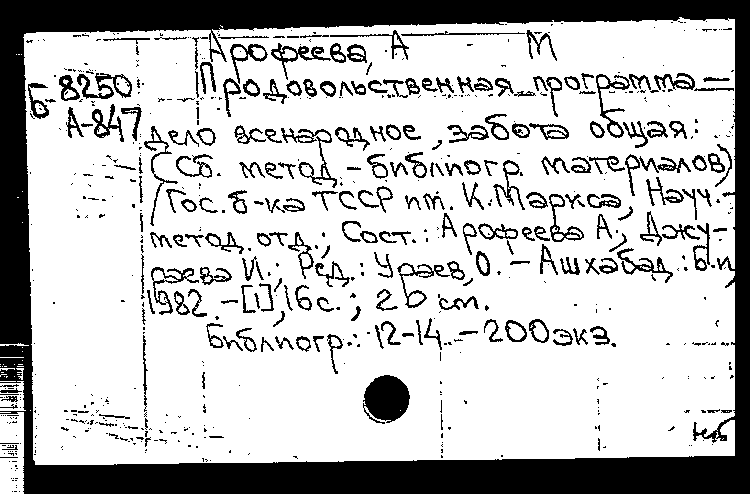 Арофеева, А М
Б-8250 Продовольственная программа —
А-847 дело всенародное, забота общая:
(Сб. метод.-библиогр. материалов)
/ Гос. б-ка ТССР им. К. Маркса, Науч.-
метод. отд.; Сост.: Арофеева А., Джу-
раева И.; Ред.: Ураев, О. — Ашхабад: Б.и,
1982. — [1], 16 с.; 20 см.
Библиогр.: 12-14. — 200 экз.